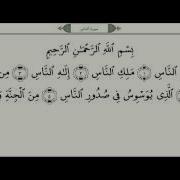 سورة الناس
بِسْمِ ٱللَّهِ ٱلرَّحْمَٰنِ ٱلرَّحِيمِ
ٱلنَّاسِ ١ مَلِكِ ٱلنَّاسِ ٢ إِلَٰهِ ٱلنَّاسِ ٣ مِن
ٱلَّذِى يُوَسْوِسُ فِى صُدُورِ ٱلنَّاسِ ٥ مِنَ ٱلْجِنَّةِ وَ